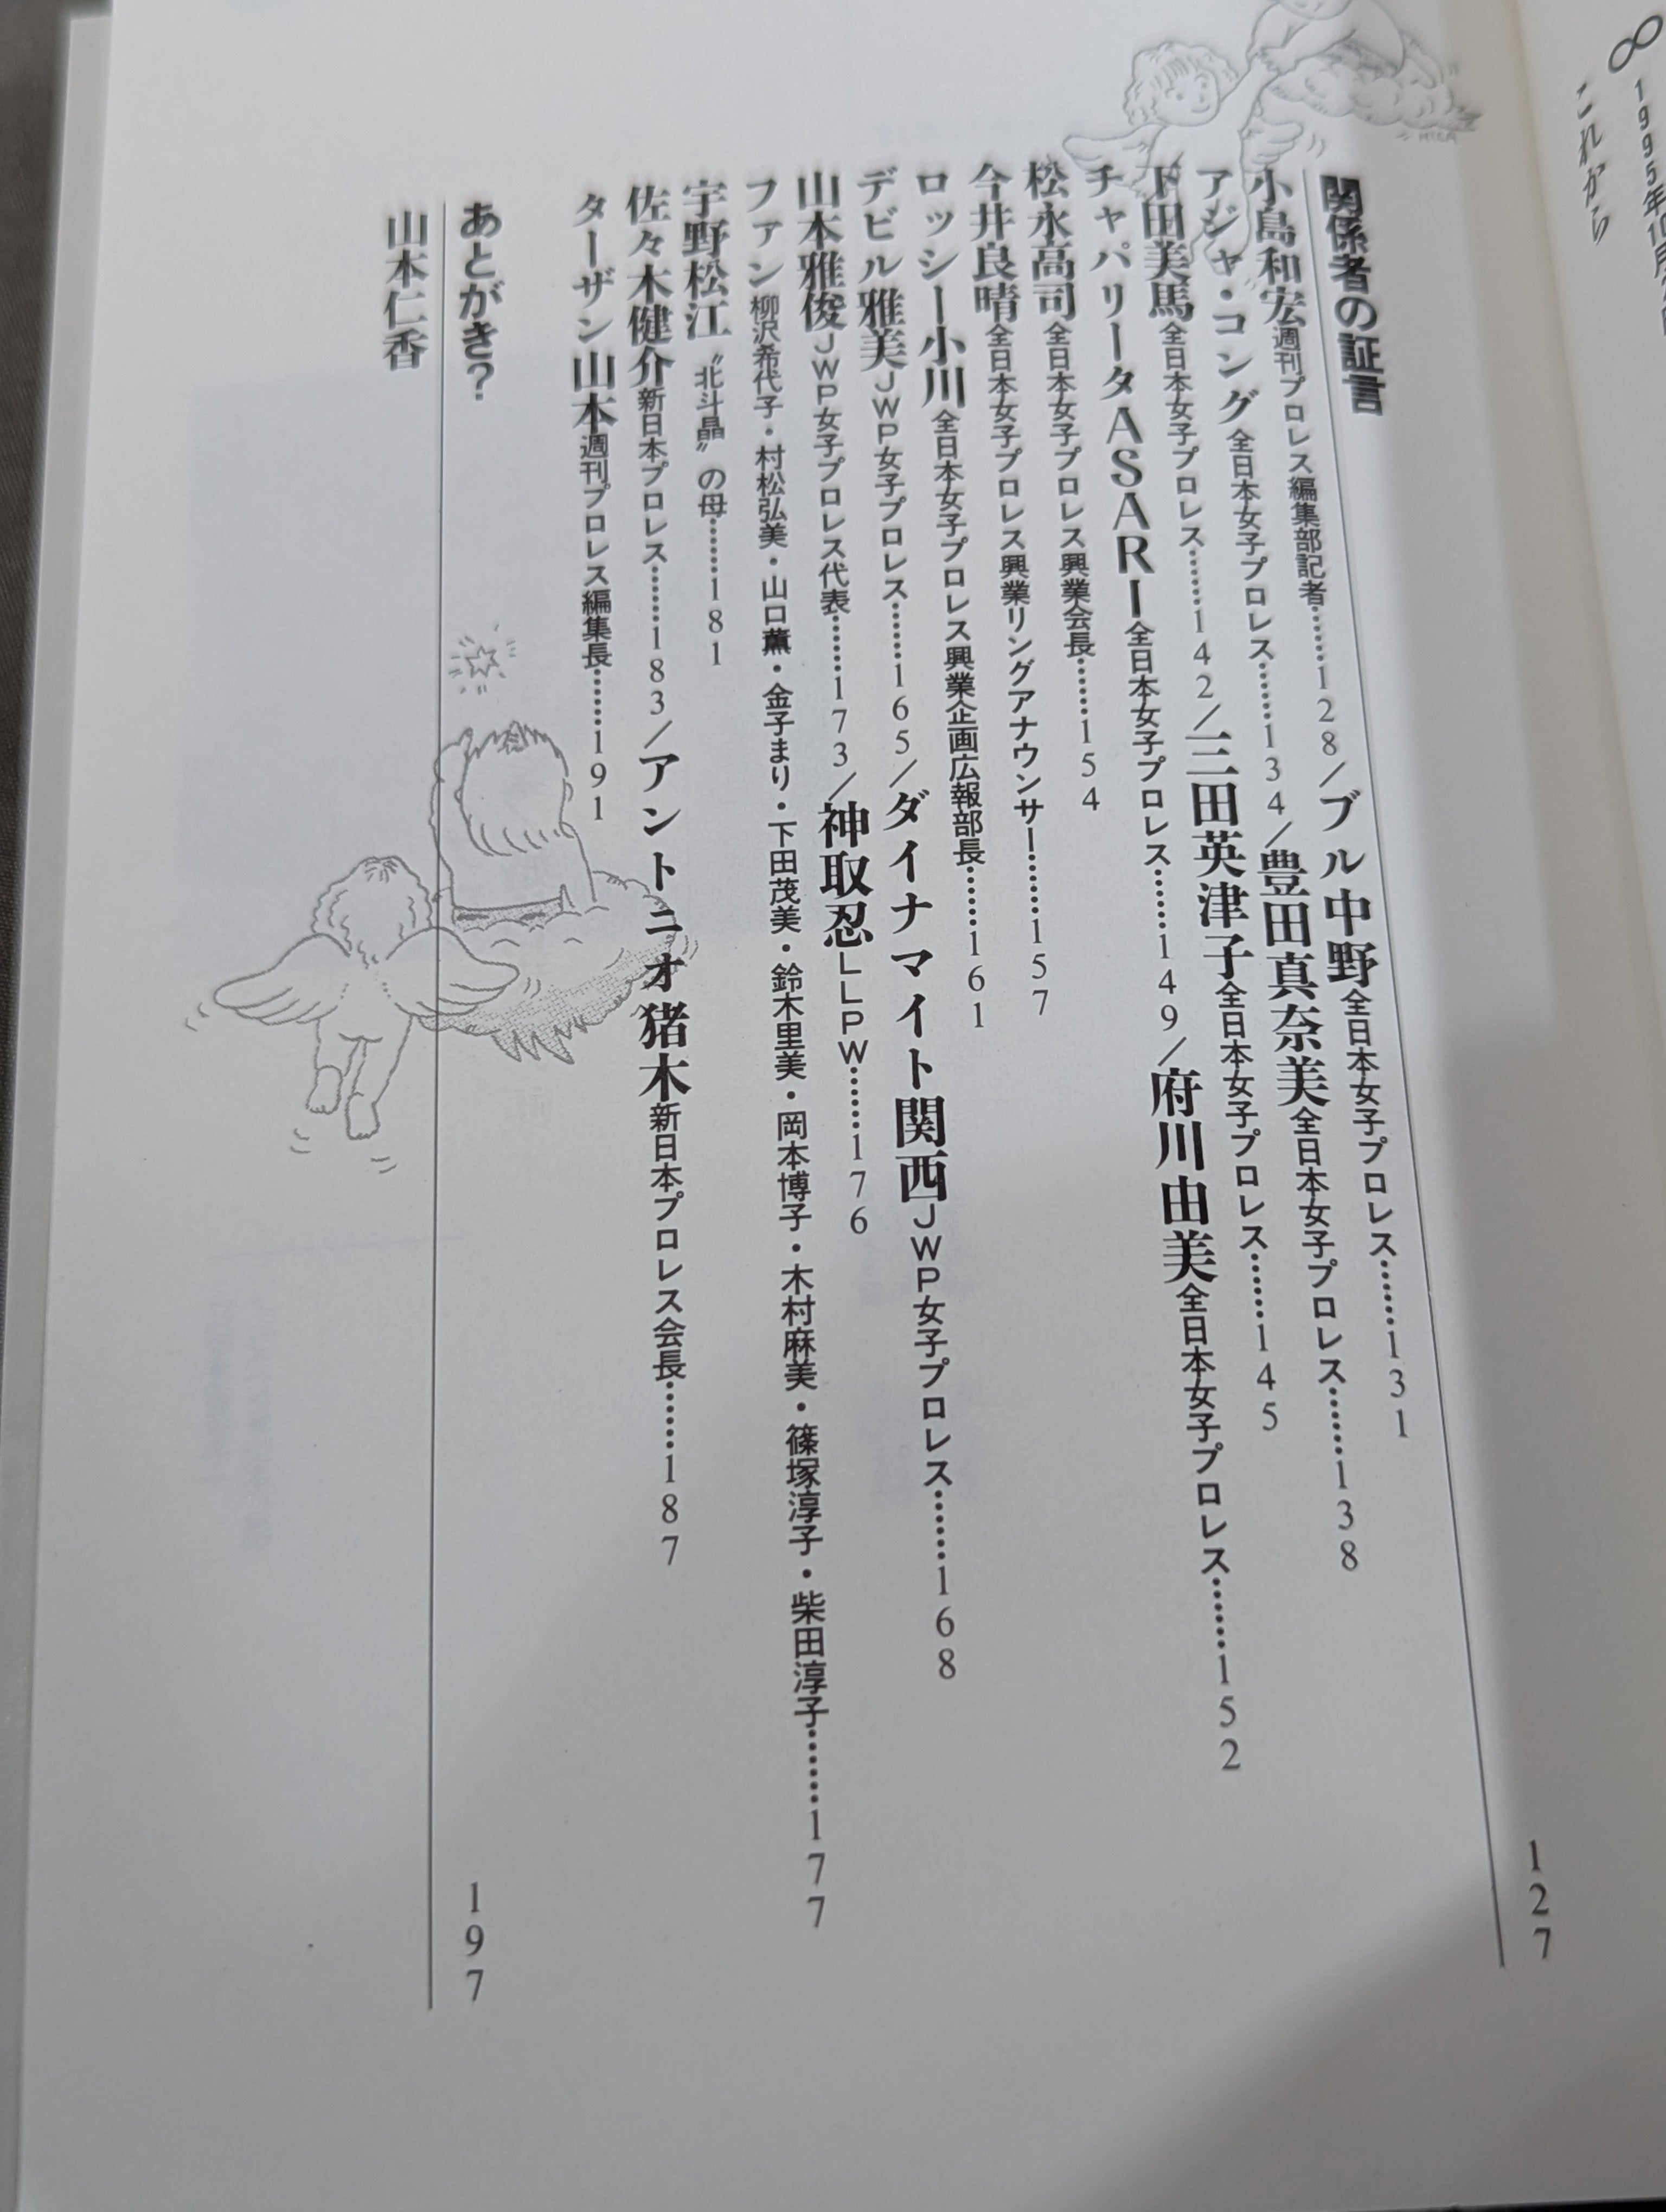 ∞
1995年10月
これから
127
関係者の証言
小島和宏週刊プロレス編集部記者……128／ブル中野全日本女子プロレス……131
アジャ・コング全日本女子プロレス……134／豊田真奈美全日本女子プロレス……138
下田美馬全日本女子プロレス……142／三田英津子全日本女子プロレス……145
チャパリータASARI全日本女子プロレス……149／府川由美全日本女子プロレス……152
松永高司全日本女子プロレス興業会長……154
今井良晴全日本女子プロレス興業リングアナウンサー……157
ロッシー小川全日本女子プロレス興業企画広報部長……161
デビル雅美JWP女子プロレス……165／ダイナマイト関西JWP女子プロレス……168
山本雅俊JWP女子プロレス代表……173／神取忍LLPW……176
ファン柳沢希代子・村松弘美・山口薫・金子まり・下田茂美・鈴木里美・岡本博子・木村麻美・篠塚淳子・柴田淳子……177
宇野松江〝北斗晶〟の母……181
佐々木健介新日本プロレス……183／アントニオ猪木新日本プロレス会長……187
ターザン山本週刊プロレス編集長……191
あとがき？
197
山本仁香